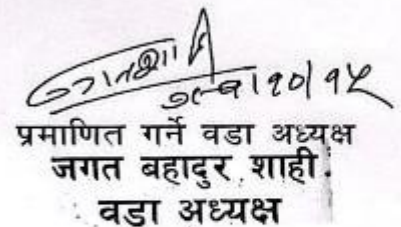 १०/१५
प्रमाणित गर्ने वडा अध्यक्ष
जगत बहादुर शाही
वडा अध्यक्ष